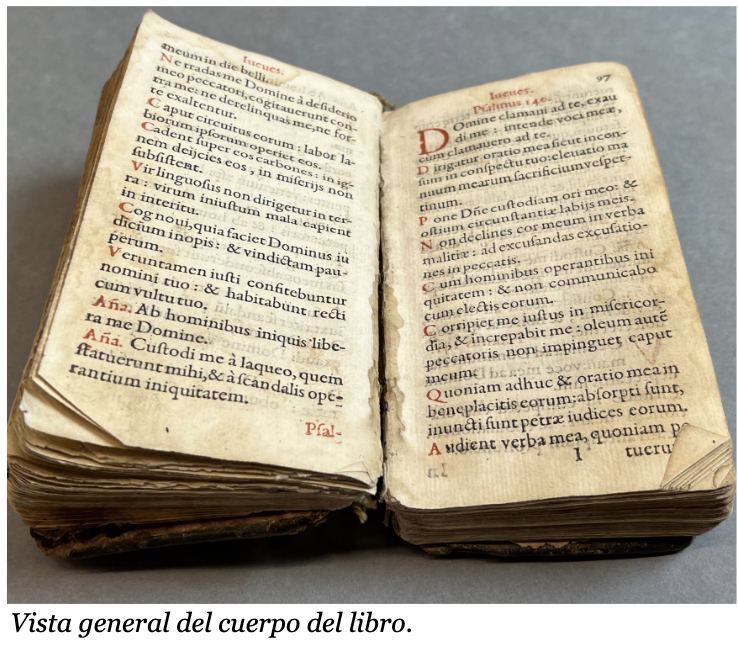 Iueues.
meum in die belli
Ne tradas me Domine à desiderio
meo peccatori, cogitauerunt con-
tra me: ne derelinquas me, ne for-
te exaltentur.
Caput circuitus eorum: labor la-
biorum ipsorum operiet eos.
Cadent super eos carbones: in ig-
nem deijcies eos, in miserijs non
subsistent.
Vir linguosus non dirigetur in ter-
ra: virum iniustum mala capient
in interitu.
Cognoui, quia faciet Dominus iu
dicium inopis: & vindictam pau-
perum.
Veruntamen iusti confitebuntur
nomini tuo: & habitabunt recti
cum vultu tuo.
Aña. Ab hominibus iniquis libe-
ra me Domine.
Aña. Custodi me à laqueo, quem
statuerunt mihi, & à scandalis ope-
rantium iniquitatem.
Psal-
97
Iueues.
Psalmus 140.
Domine clamaui ad te, exau
di me: intende voci meæ,
cum clamauero ad te.
Dirigatur oratio mea sicut incen-
sum in conspectu tuo: eleuatio ma
nuum mearum sacrificium vesper-
tinum.
Pone Dñe custodiam ori meo: &
ostium circunstantiæ labijs meis.
Non declines cor meum in verba
malitiæ: ad excusandas excusatio-
nes in peccatis.
Cum hominibus operantibus ini
quitatem: & non communicabo
cum electis eorum.
Corripiet me iustus in misericor-
dia, & increpabit me: oleum autē
peccatoris non impinguet caput
meum.
Quoniam adhuc & oratio mea in
beneplacitis eorum: absorpti sunt,
iuncti sunt petræ iudices eorum.
Audient verba mea, quoniam
I
Vista general del cuerpo del libro.